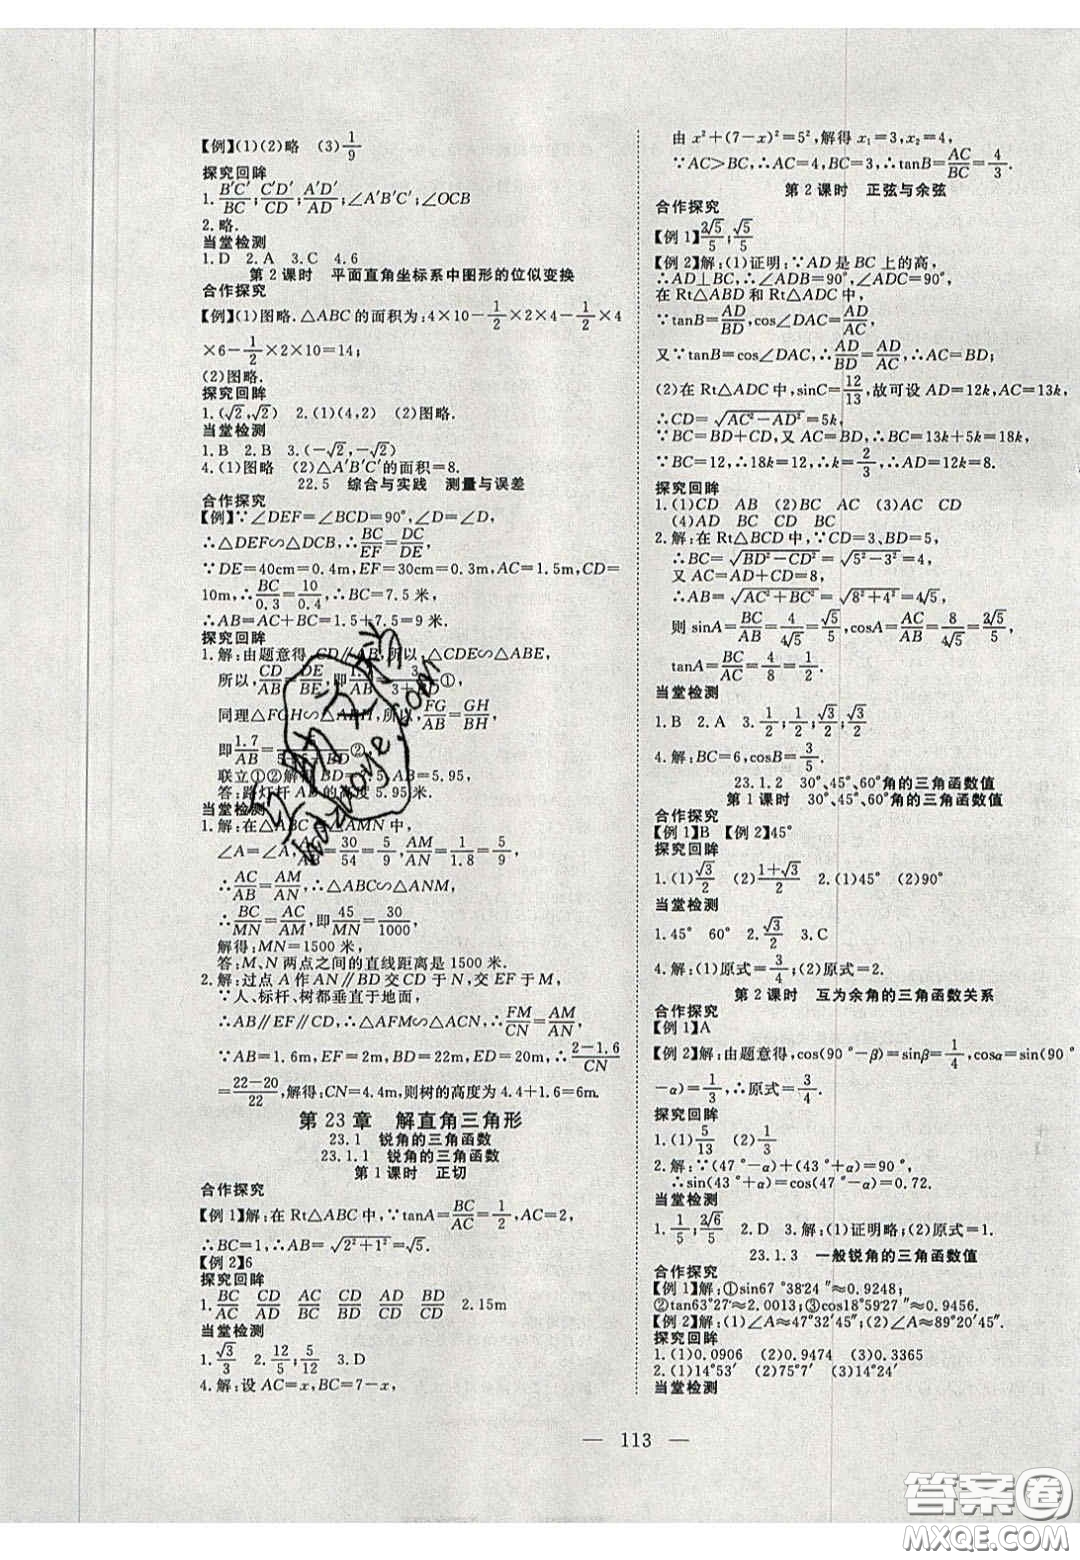 【例】(1)(2)略 (3)1/9
探究回眸
1.B′C′/BC;C′D′/CD;A′D′/AD;∠A′B′C′;∠OCB
2.略.
当堂检测
1.D 2.A 3.C 4.6
第2课时 平面直角坐标系中图形的位似变换
合作探究
【例】(1)图略.△ABC的面积为:4×10−1/2×2×4−1/2×4
×6−1/2×2×10=14;
(2)图略.
探究回眸
1.(√2,√2) 2.(1)(4,2) (2)图略.
当堂检测
1.B 2.B 3.(−√2,−√2)
4.(1)图略 (2)△A′B′C′的面积=8.
22.5 综合与实践 测量与误差
合作探究
【例】∵∠DEF=∠BCD=90°,∠D=∠D,
∴△DEF∽△DCB,∴BC/EF=DC/DE,
∵DE=40cm=0.4m,EF=30cm=0.3m,AC=1.5m,CD=
10m,∴BC/0.3=10/0.4,∴BC=7.5米,
∴AB=AC+BC=1.5+7.5=9米.
探究回眸
1.解:由题意得,CD∥AB,所以,△CDE∽△ABE,
所以,CD/AB=DE/BE,即1.7/AB=3/3+BD①,
同理△FGH∽△ABH,所以,FG/AB=GH/BH,
即1.7/AB= ②,
联立①②解得 AB=5.95,
答:路灯杆AB的高度5.95米.
当堂检测
1.解:在△ABC △AMN中,
∠A=∠A,AC/AB=30/54=5/9,AM/AN=1/1.8=5/9,
∴AC/AB=AM/AN,∴△ABC∽△ANM,
∴BC/MN=AC/AM,即45/MN=30/1000,
解得:MN=1500米,
答:M、N两点之间的直线距离是1500米.
2.解:过点A作AN∥BD交CD于N,交EF于M,
∵人、标杆、树都垂直于地面,
∴AB∥EF∥CD,∴△AFM∽△ACN,∴FM/CN=AM/AN,
∵AB=1.6m,EF=2m,BD=22m,ED=20m,∴2−1.6/CN
=22−20/22,解得:CN=4.4m,则树的高度为4.4+1.6=6m.
第23章 解直角三角形
23.1 锐角的三角函数
23.1.1 锐角的三角函数
第1课时 正切
合作探究
【例1】解:在Rt△ABC中,∵tanA=BC/AC=1/2,AC=2,
∴BC=1,∴AB=√2²+1²=√5.
【例2】6
探究回眸
1.BC/AC CD/AD AC/BC CD/BD AD/CD BD/CD 2.15m
当堂检测
1.√3/3 2.12/5;5/12 3.D
4.解:设AC=x,BC=7−x,
由x²+(7−x)²=5²,解得x₁=3,x₂=4,
∵AC>BC,∴AC=4,BC=3,∴tanB=AC/BC=4/3.
第2课时 正弦与余弦
合作探究
【例1】2√5/5;√5/5
【例2】解:(1)证明:∵AD是BC上的高,
∴AD⊥BC,∴∠ADB=90°,∠ADC=90°,
在Rt△ABD和Rt△ADC中,
∵tanB=AD/BD,cos∠DAC=AD/AC,
又∵tanB=cos∠DAC,∴AD/BD=AD/AC,∴AC=BD;
(2)在Rt△ADC中,sinC=12/13,故可设AD=12k,AC=13k,
∴CD=√AC²−AD²=5k,
∵BC=BD+CD,又AC=BD,∴BC=13k+5k=18k,
∵BC=12,∴18k=12,∴k=2/3,∴AD=12k=8.
探究回眸
1.(1)CD AB (2)BC AC (3)AC CD
(4)AD BC CD BC
2.解:在Rt△BCD中,∵CD=3、BD=5,
∴BC=√BD²−CD²=√5²−3²=4,
又AC=AD+CD=8,
∴AB=√AC²+BC²=√8²+4²=4√5,
则sinA=BC/AB=4/4√5=√5/5,cosA=AC/AB=8/4√5=2√5/5,
tanA=BC/AC=4/8=1/2.
当堂检测
1.B 2.A 3.1/2;1/2;√3/2;√3/2
4.解:BC=6,cosB=3/5.
23.1.2 30°、45°、60°角的三角函数值
第1课时 30°、45°、60°角的三角函数值
合作探究
【例1】B 【例2】45°
探究回眸
1.(1)√3/2 (2)1+√3/2 2.(1)45° (2)90°
当堂检测
1.45° 60° 2.√3/2 3.C
4.解:(1)原式=3/4;(2)原式=2.
第2课时 互为余角的三角函数关系
合作探究
【例1】A
【例2】解:由题意得,cos(90°−β)=sinβ=1/4,cosα=sin(90°
−α)=1/3,∴原式=3/4.
探究回眸
1.(1)5/13 (2)1/3
2.解:∵(47°−α)+(43°+α)=90°,
∴sin(43°+α)=cos(47°−α)=0.72.
当堂检测
1.1/5;2√6/5 2.D 3.解:(1)证明略;(2)原式=1.
23.1.3 一般锐角的三角函数值
合作探究
【例1】解:①sin67°38′24″≈0.9248;
②tan63°27′≈2.0013;③cos18°59′27″≈0.9456.
【例2】解:(1)∠A≈47°32′45″;(2)∠A≈89°20′45″.
探究回眸
1.(1)0.0906 (2)0.9100 (3)0.9657
2.(1)14°53′ (2)75°7′ (3)14°24′
当堂检测
— 113 —
答案圈
MXQE.COM